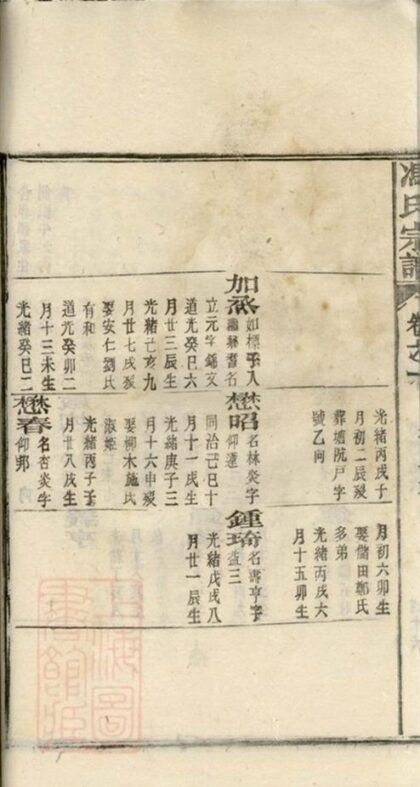 馮氏宗譜
卷之
光緒丙戌子
月初二辰殁
葬壋阮尸字
號乙向
月初六卯生
娶儲田鄭氏
多弟
光緒丙戌六
月十五卯生
加烝
如標子入
名
立元字錦文
道光癸巳六
月廿三辰生
光緒己亥九
月廿七戌殁
娶安仁劉氏
有和
道光癸卯二
月十三未生
光緒癸巳二
懋昭
名林炎字
仰連
同治己巳十
月十一戌生
光緒庚子三
月十六申殁
娶柳木施氏
淑姬
光緒丙子子
月廿八戌生
懋春
名杏炎字
仰鄭
鍾琦
名書亨字
益三
光緒戊戌八
月廿一辰生
上海圖
書館藏